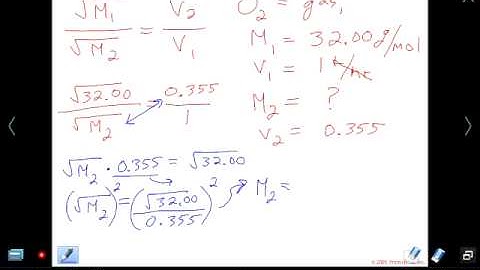 √M₁ / √M₂ = V₂ / V₁
O₂ = gas₁
M₁ = 32.00 g/mol
V₁ = 1
M₂ = ?
V₂ = 0.355
√32.00 / √M₂ = 0.355 / 1
√M₂ · 0.355 = √32.00
(√M₂)² = (√32.00 / 0.355)² M₂ =